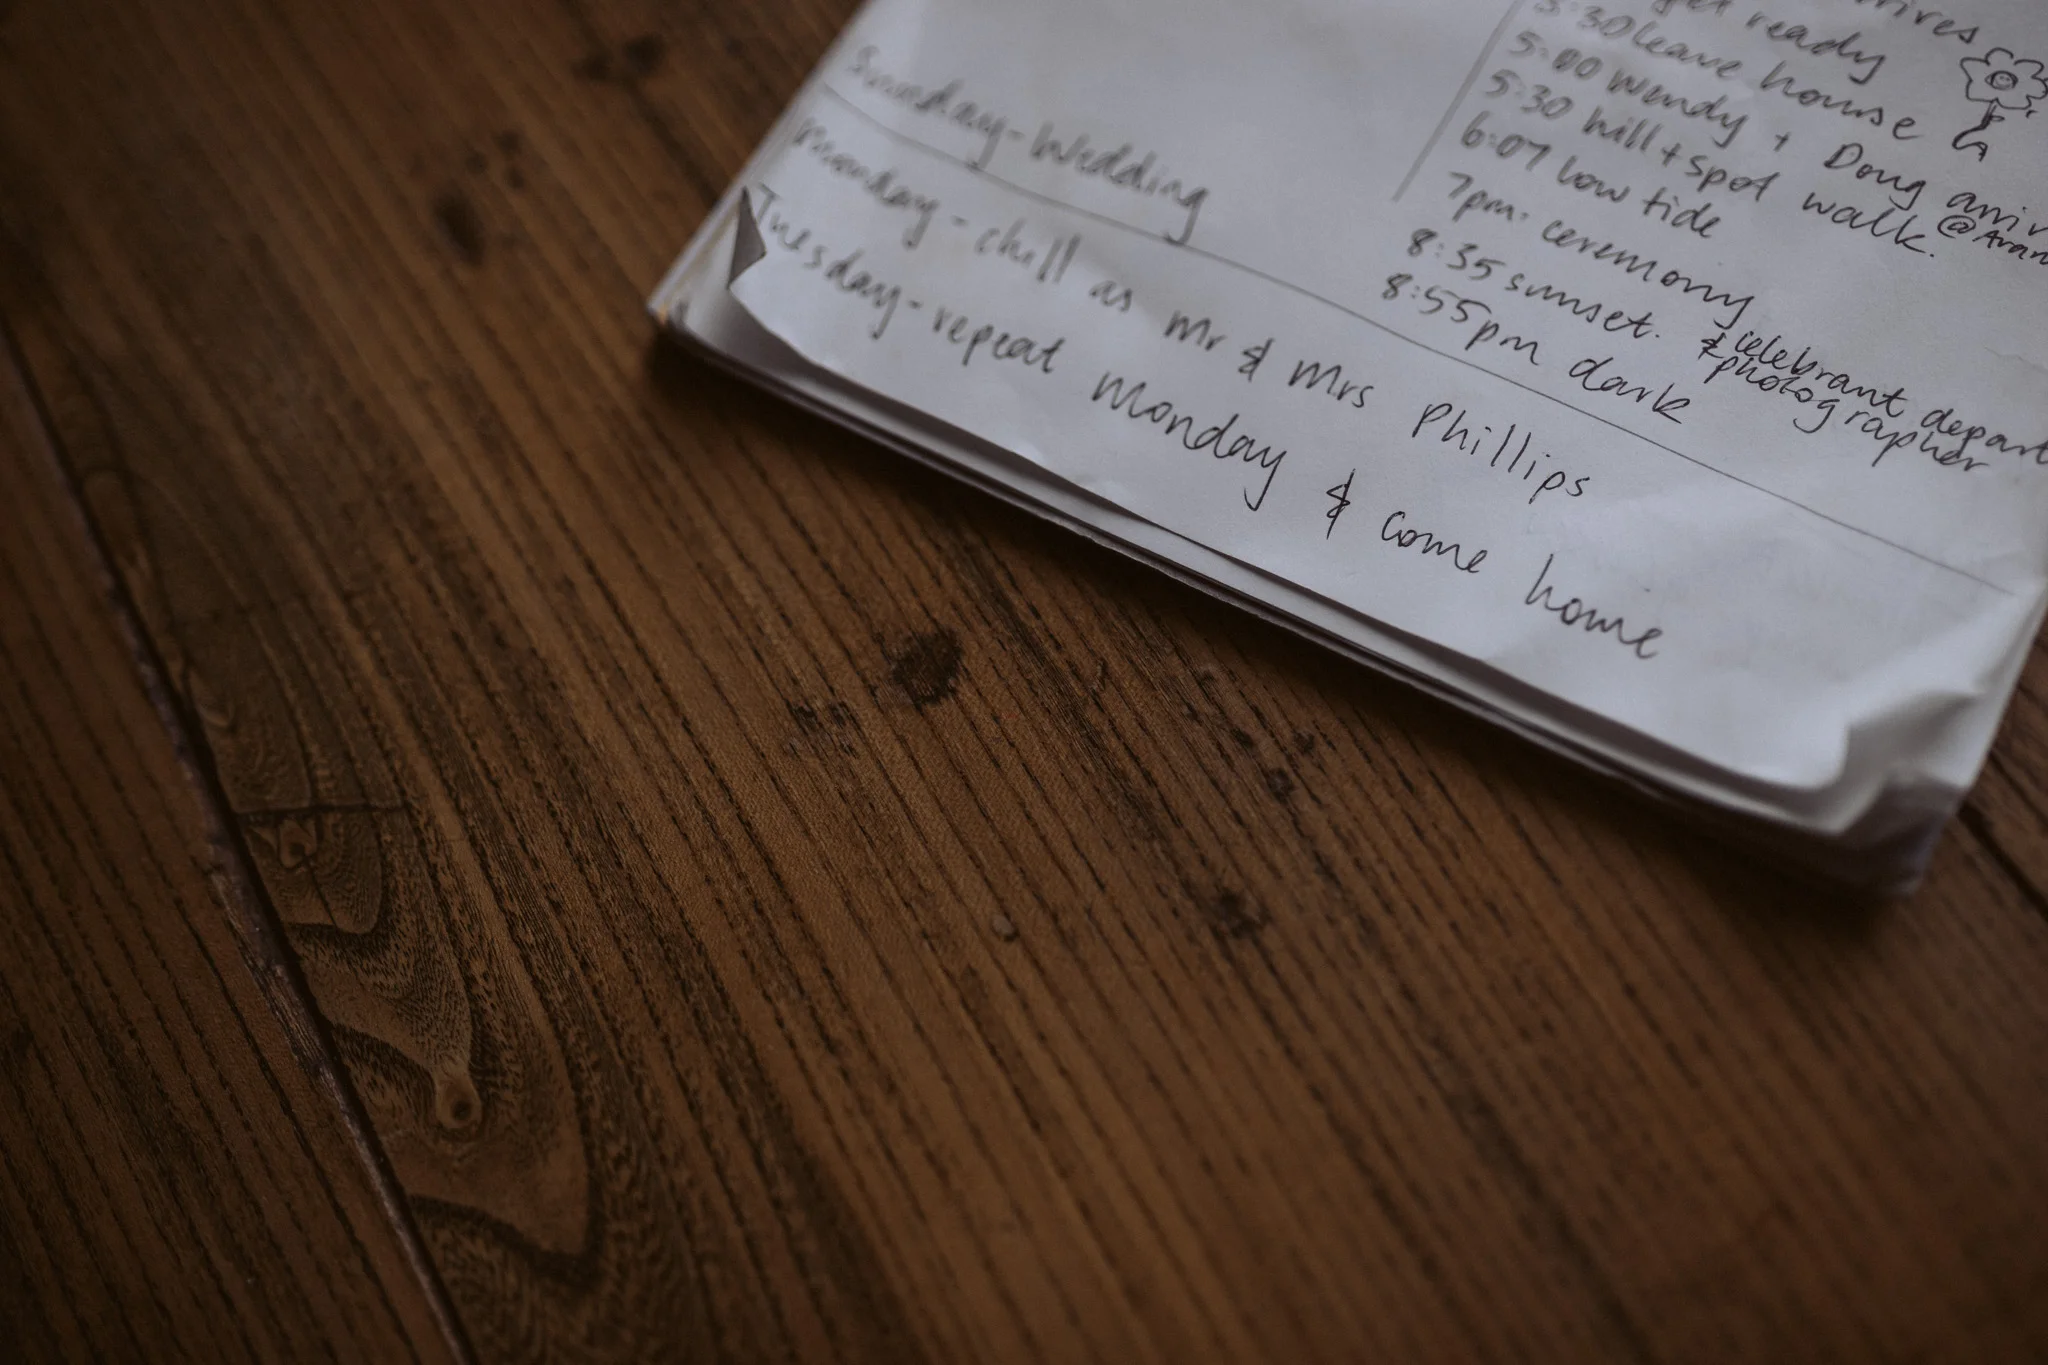 Sunday - Wedding
get ready
3:30 leave house
5:00 Wendy + Doug
5:30 hill + spot walk.
6:07 low tide
7pm. ceremony
8:35 sunset. & celebrant depart
& photographer
8:55pm dark
Monday - chill as Mr & Mrs Phillips
Tuesday - repeat Monday & come home